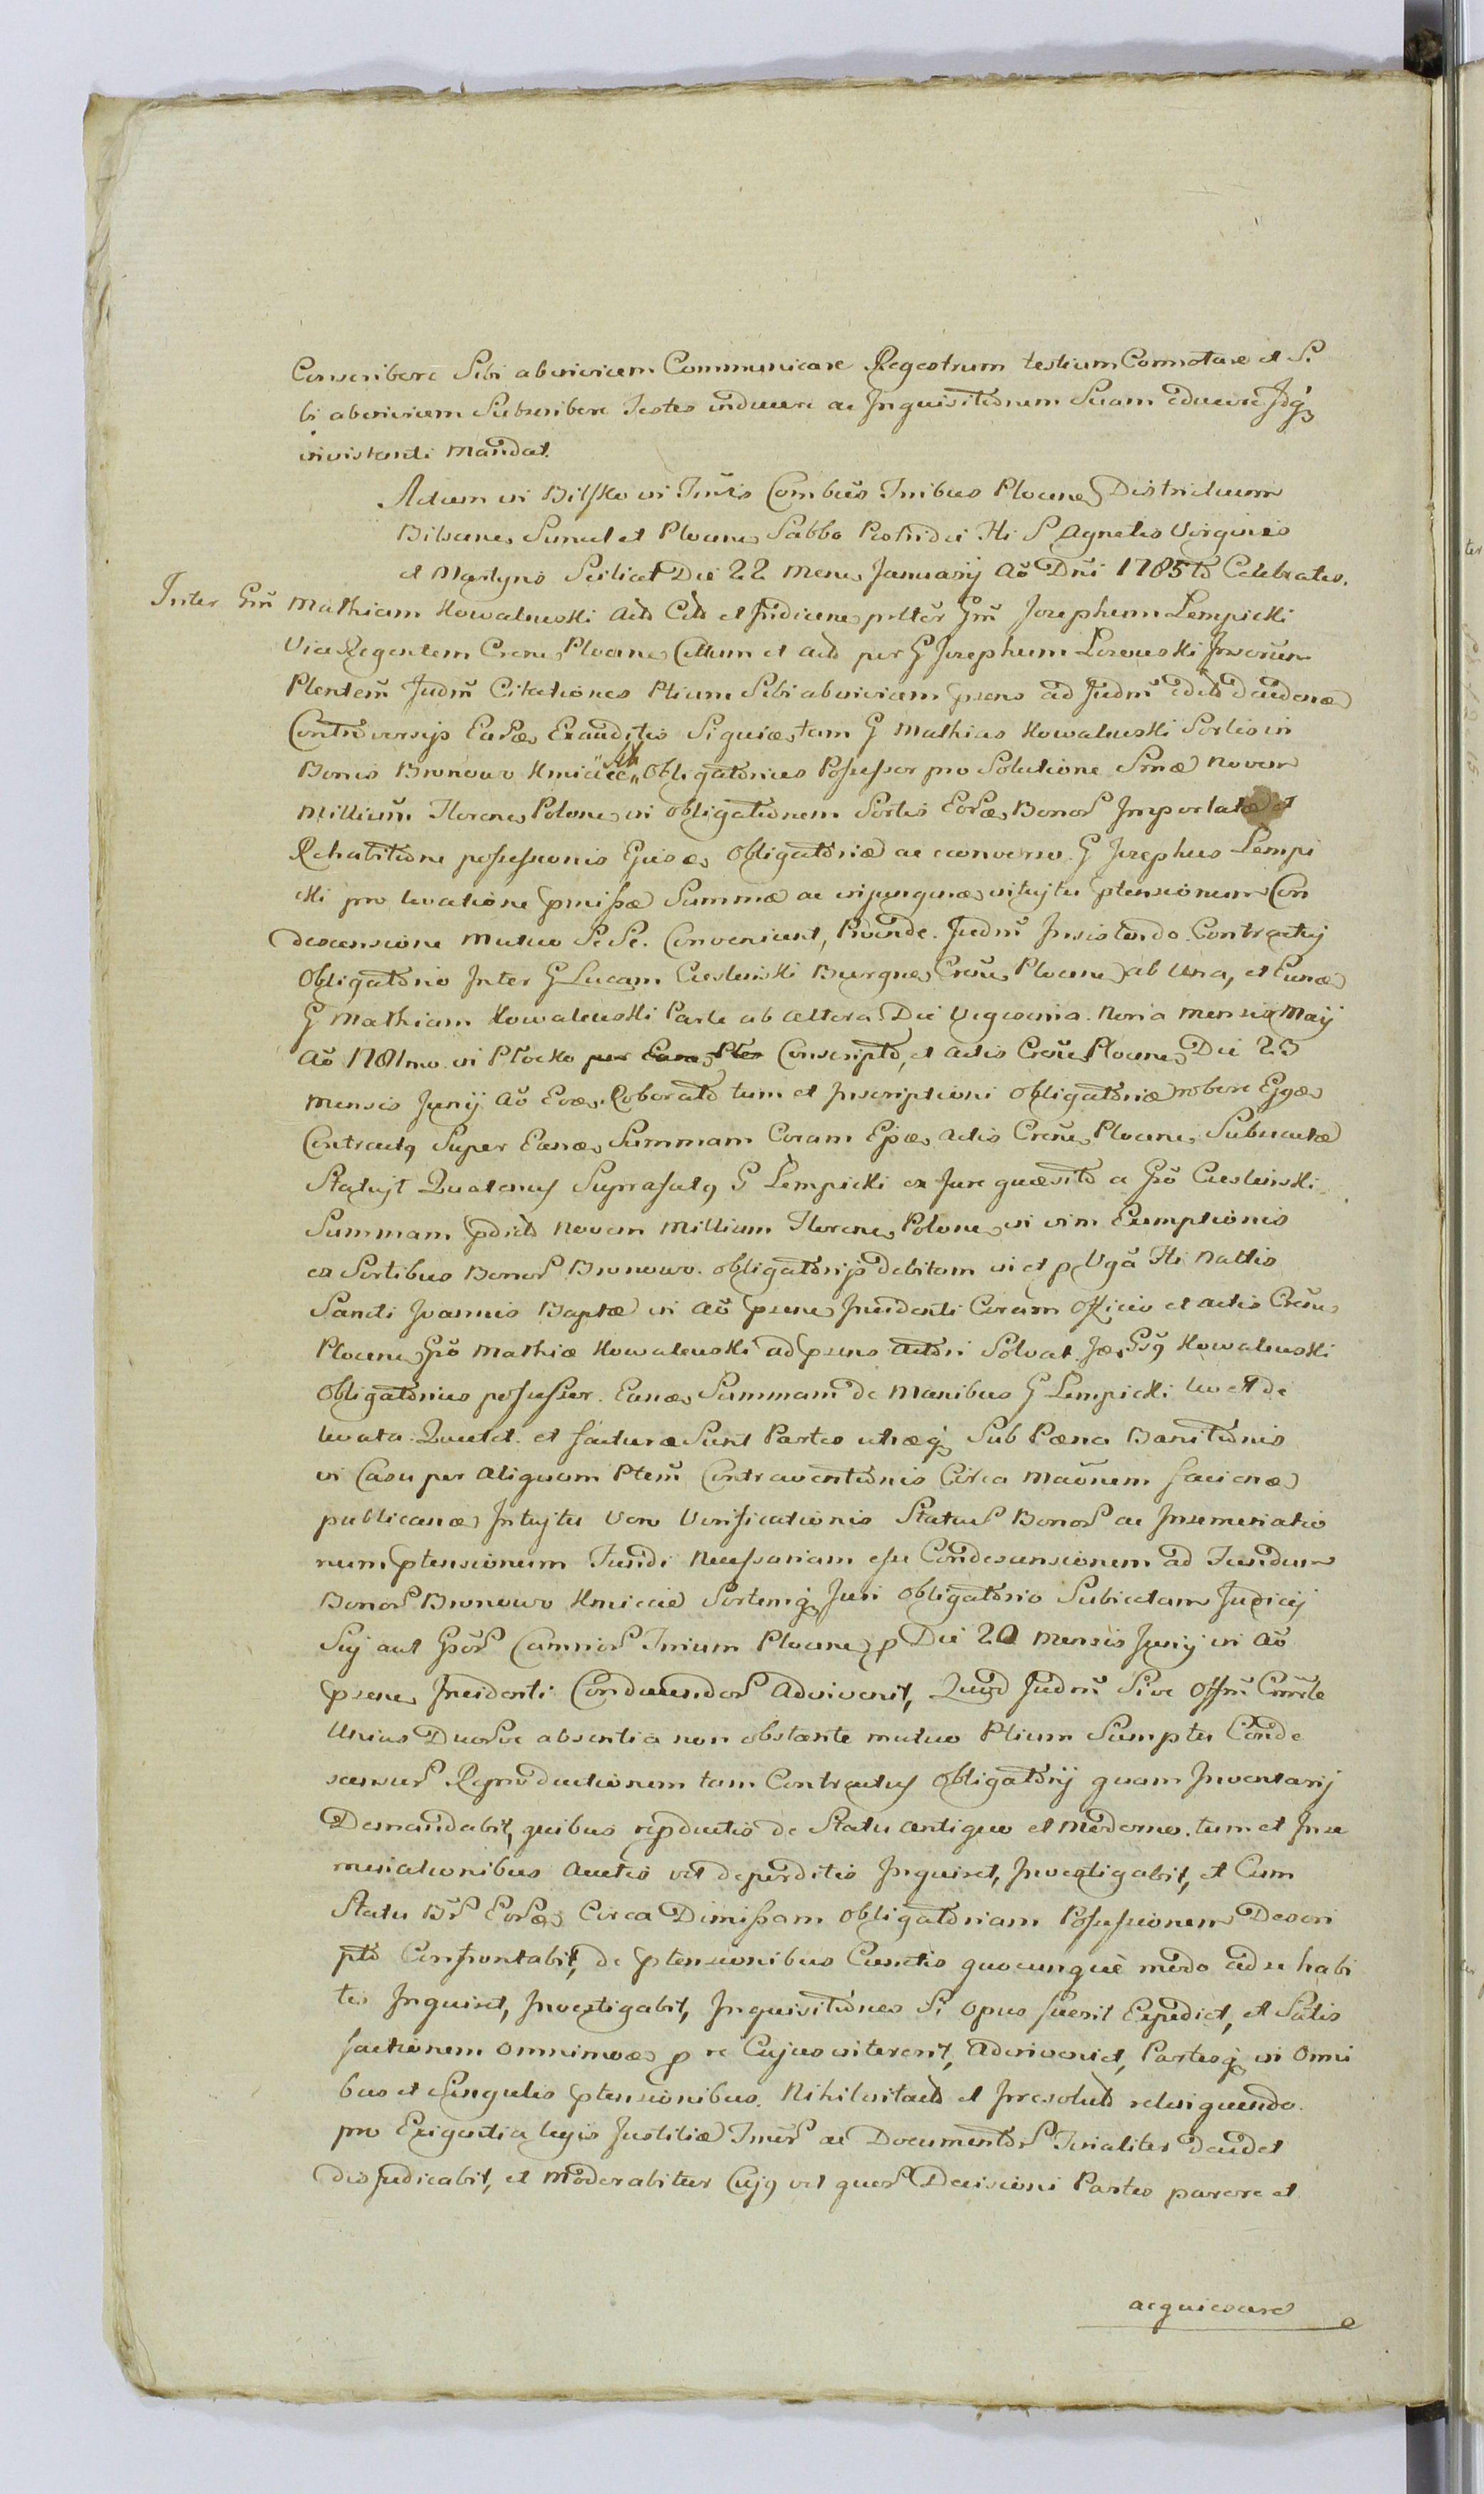 Conscribere Sibi abinvicem Communicare Regestrum testium Connotare et Si
bi abinvicem Subscribere Testes inducere ac Inquisitionem Suam educere Idq3
invistenti Mandat.
Actum in Bilsko in Tmis Combus Tribus Plocen Districtuum
Bilscen Simul et Plocen Sabbo Postridie Fti S Agnetis Virginis
et Martyris Scilicet Die 22 Mens Januarij Aō Dni 1785to Celebratis.
Inter Gm Mathiam Kowalewski Actō Citō et Judicen pntter Gm Josephum Lempicki
Vice Regentem Crens Plocen Cittum et actō per G Josephum Lozewski
Plentem Judm Citationes Ptium Sibi abinvicem psens ad Judm edito dcudenæ
Controversijs Earæ Exauditis Siquiæ tam G Mathias Kowalewski Sortis in
Bonis Bronowo Kmicice Obligatorius Possessor pro Solutione Smæ Novem
Millium Floren Polon in obligationem Sortis Eoræ Bonor Importatæ et
Rehabitione possessionis Ejusæ Obligatoriæ ac econverso G Josephus Lempi
cki pro levatione pmissæ Summæ ac injunguæ intuitu ptensionum Con
descensione Mutuo Se Se Conveniunt, Proinde Judm Insistendo Contractuj
Obligatorio Inter G Lucam Ciesluiski Burgræ Crens Plocen ab Una, et Eunæ
G Mathiam Kowalewski Parte ab Altera Die Vigesima Nona Mensis Maij
Aō 1781mo in Płocko per Conscripto, et Actis Crens Plocen Die 23
Mensis Junij Aō Eoæ Roborato tum et Inscriptioni Obligatoriæ robore Ejqæ
Contractq Super Eanæ Summam Coram Epæ Actis Crens Plocen Subsecutæ
Statujt Quatenus Suprafatq G Lempicki ex Jure quæsito a Gō Ciesluiski
Summam pdictō Novem Millium Floren Polon in vim Exemptionis
ex Sortibus Bonor Bronowo obligatorijs debitam in et p Vgā Fti Nattis
Sancti Joannis Baptæ in Aō psens Incidenti Coram Officio et Actis Crens
Plocen Gō Mathiæ Kowalewski ad psens Actori Solvat Iæ Gsq Kowalewski
Obligatorius possessor Eanæ Summam de Manibus G Lempicki levet de
levata Quietet et facturæ Sunt Partes utræq3 Sub Pæna Banitionis
in Casu per Aliquam Ptem Contraventionis Circa Maōnem facienæ
publicanæ Intujtu Vero Verificationis Status Bonor ac Insemenatio
num ptensionum Fundi Necessariam esse Condescensionem ad Fundum
Bonor Bronowo Kmicice Sortemq3 Juri Obligatorio Subiectam Judicij
Sij aut Gsor Camrior Trium Plocen p Die 20 Mensis Junij in Aō
psens Incidenti Conducendor Advivenit, Quod Judm Sive Offm Cmrrle
Unius Duorve absentia non obstante mutuo Ptium Sumptu Conde
scensur Reproductionem tam Contractus Obligatorij quam Inventarij
Demandabit, quibus repductis de Statu antiquo et Moderno tum et Inse
menationibus Auctis vel deperditis Inquiret, Investigabit, et Cum
Statu Br Eorōæ Circa Dimissam Obligatoriam Possessionem Descri
pto Confrontabit, de ptensionibus Cunctis quocunquè modo ad se habi
tis Inquiret, Investigabit, Inquisitiones Si opus fuerit Expediet, et Satis
factionem omnimoæ p re Cujus intererit, Adinveniet, Partesq3 in Omni
bus et Singulis ptensionibus Nihil intactō et Irresolutō relinquendo
pro Exigentia legis Justitiæ Juir ac Documentor Finaliter decidet
disjudicabit, et Moderabitur Cujq vel quor Decisioni Partes parere et
acquiescere